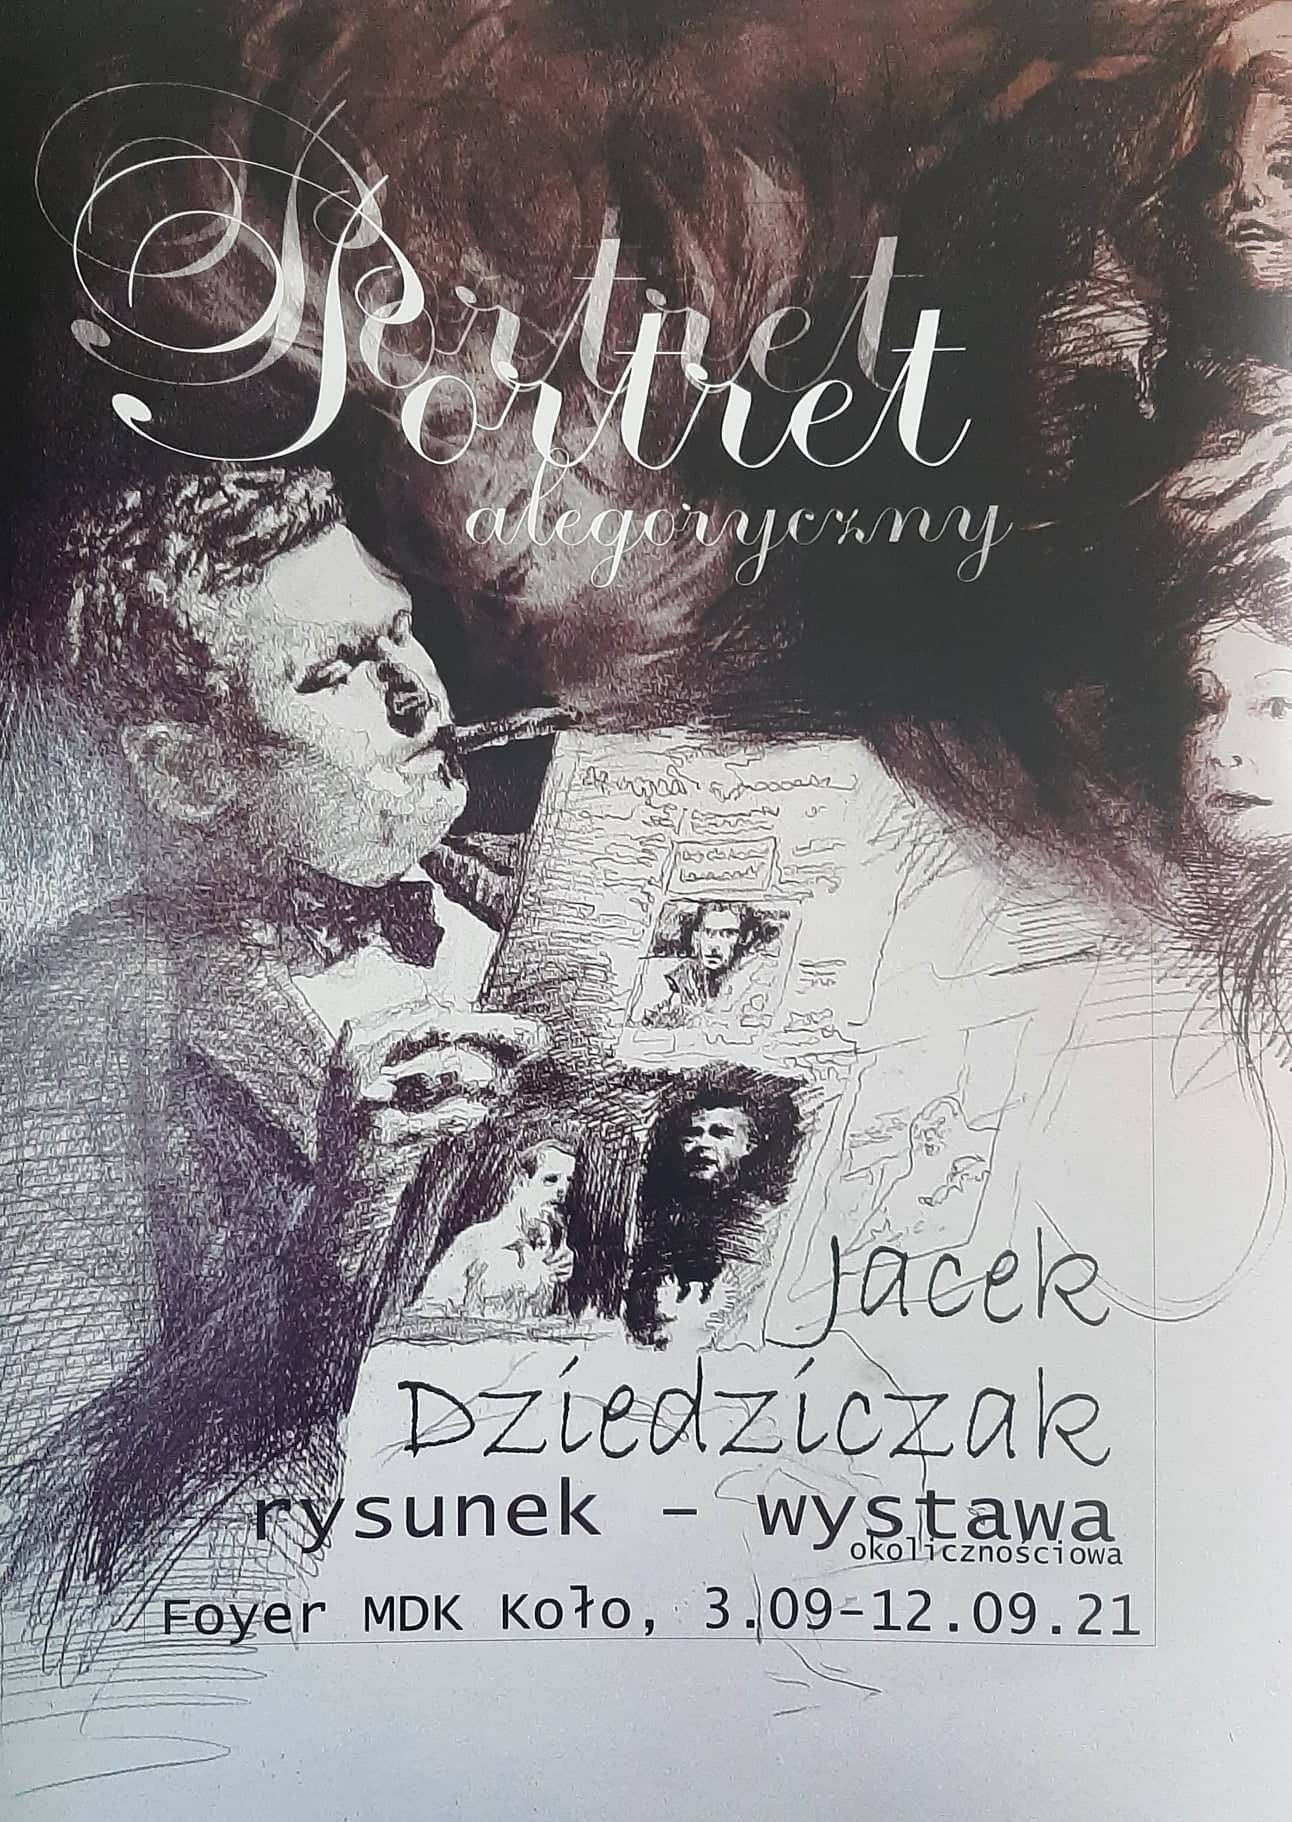 Portret
alegoryczny
Jacek
Dziedziczak
rysunek - wystawa
okolicznościowa
Foyer MDK Koło, 3.09-12.09.21